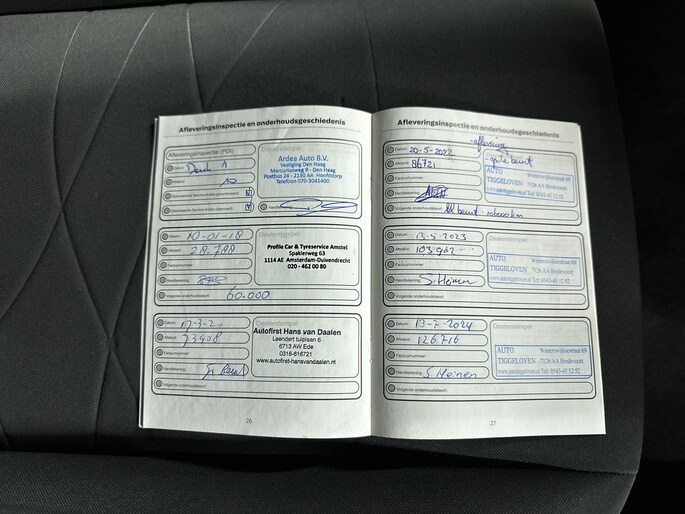 Afleveringsinspectie en onderhoudsgeschiedenis
Afleveringsinspectie (PDI)
Datum
Afstand 10
Handtekening
Dealerstempel
Ardea Auto B.V.
Vestiging Den Haag
Mercuriusweg 9 - Den Haag
Postbus 24 - 2130 AA Hoofddorp
Telefoon 070-3041400
Datum 10-01-18
Afstand 28.788
Factuurnummer
Handtekening
Volgende onderhoudsbeurt 60.000
Dealerstempel
Profile Car & Tyreservice Amstel
Spaklerweg 63
1114 AE Amsterdam-Duivendrecht
020 - 462 00 80
Datum
Afstand 73908
Factuurnummer
Handtekening
Volgende onderhoudsbeurt
Dealerstempel
Autofirst Hans van Daalen
Leendert tulplaan 6
6713 AW Ede
0318-616721
www.autofirst-hansvandaalen.nl
26
Afleveringsinspectie en onderhoudsgeschiedenis
aflevering
Datum 20-5-2022
grote beurt
Afstand 86721
Factuurnummer
Handtekening
Volgende onderhoudsbeurt
Dealerstempel
AUTO
TIGGELOVEN
7126 AA Bredevoort
Datum 12-5-2023
Afstand 103.962
Factuurnummer
Handtekening S. Heinen
Volgende onderhoudsbeurt
Dealerstempel
AUTO Winterswijksestraat 69
TIGGELOVEN 7126 AA Bredevoort
www.autotiggeloven.nl Tel: 0543-45 12 52
Datum 13-7-2024
Afstand 126.716
Factuurnummer
Handtekening S. Heinen
Volgende onderhoudsbeurt
Dealerstempel
AUTO Winterswijksestraat 69
TIGGELOVEN 7126 AA Bredevoort
www.autotiggeloven.nl Tel: 0543-45 12 52
27